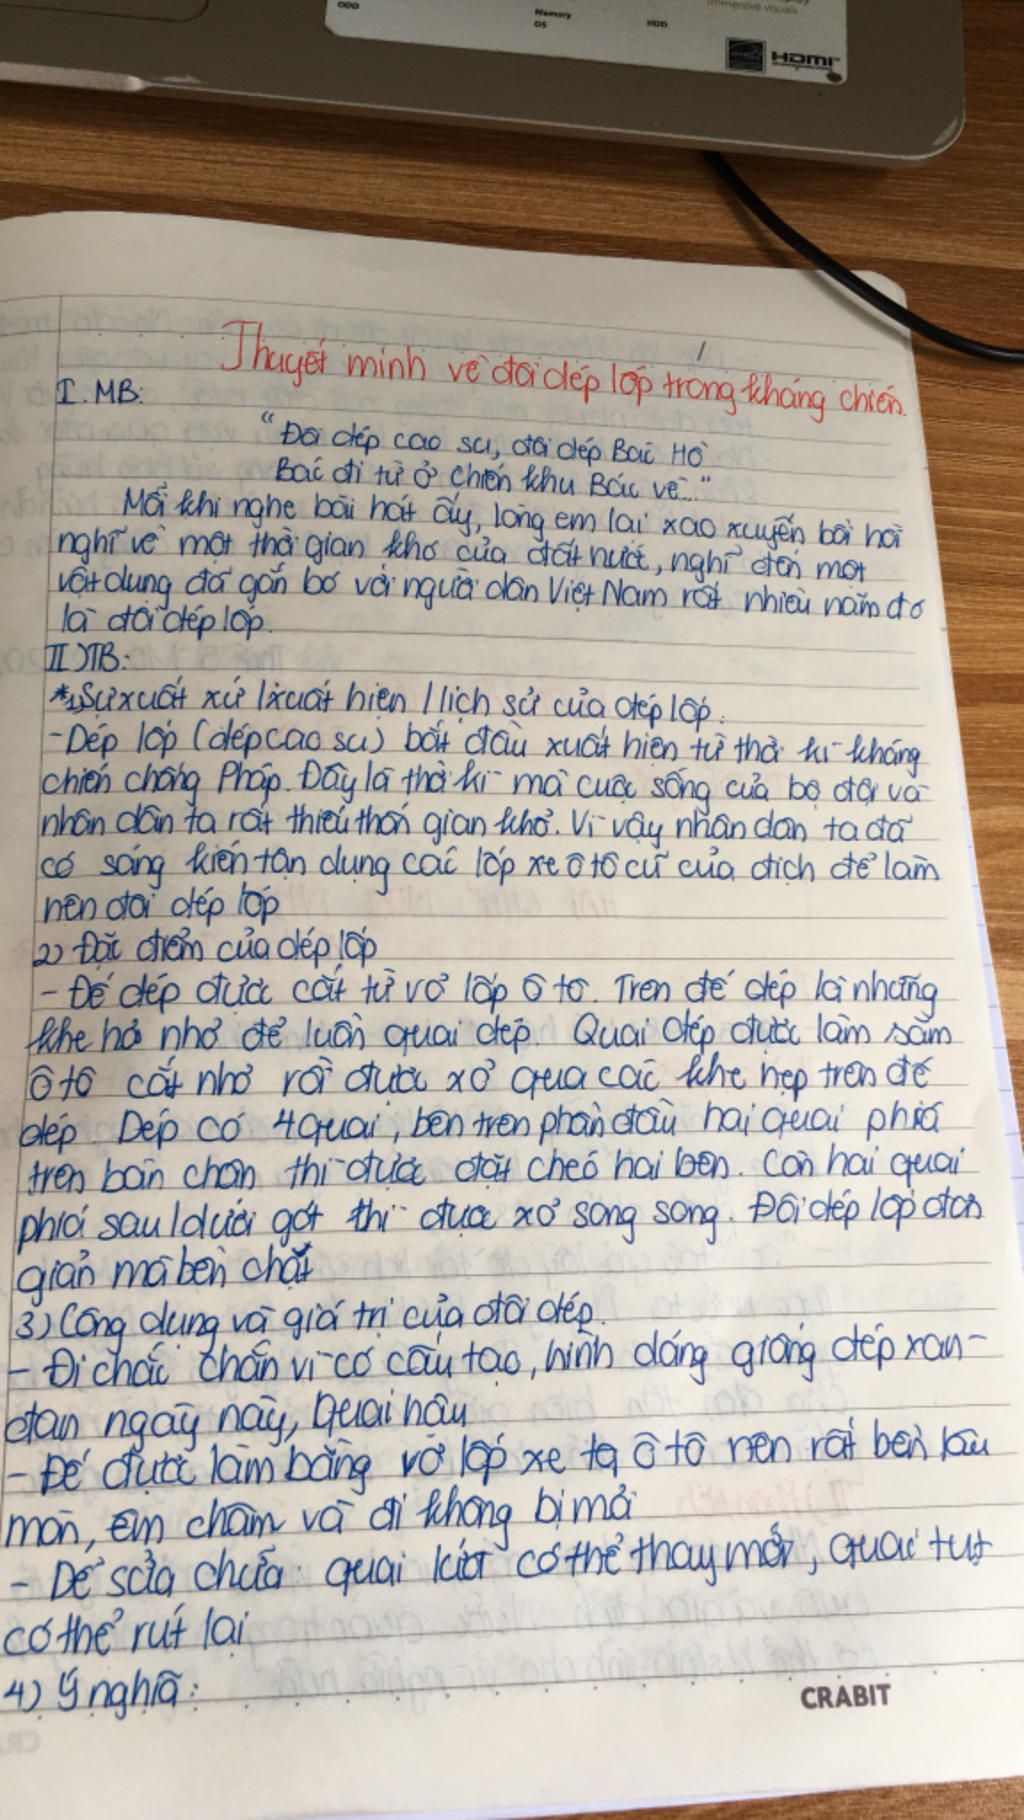 ODD
Memory
OS
HDD
immersive visuals
HDMI
Thuyết minh về đôi dép lốp trong kháng chiến.
I. MB:
"Đôi dép cao su, đôi dép Bác Hồ
Bác đi từ ở chiến khu Bác về..."
Mỗi khi nghe bài hát ấy, lòng em lại xao xuyến bồi hồi
nghĩ về một thời gian khó của đất nước, nghĩ đến một
vật dụng đã gắn bó với người dân Việt Nam rất nhiều năm đó
là đôi dép lốp.
II) TB:
*1, Sự xuất xứ / xuất hiện / lịch sử của dép lốp:
- Dép lốp (dép cao su) bắt đầu xuất hiện từ thời kì kháng
chiến chống Pháp. Đây là thời kì mà cuộc sống của bộ đội và
nhân dân ta rất thiếu thốn gian khổ. Vì vậy nhân dân ta đã
có sáng kiến tận dụng các lốp xe ô tô cũ của địch để làm
nên đôi dép lốp
2) Đặc điểm của dép lốp
- Đế dép được cắt từ vỏ lốp ô tô. Trên đế dép là những
khe hở nhỏ để luồn quai dép. Quai dép được làm săm
ô tô cắt nhỏ rồi được xỏ qua các khe hẹp trên đế
dép. Dép có 4 quai, bên trên phần đầu hai quai phía
trên bàn chân thì được đặt chéo hai bên. Còn hai quai
phía sau / dưới gót thì được xỏ song song. Đôi dép lốp đơn
giản mà bền chặt
3) Công dụng và giá trị của đôi dép.
- Đi chắc chắn vì có cấu tạo, hình dáng giống dép xan-
đan ngày nay, quai hậu
- Đế được làm bằng vỏ lốp xe ta ô tô nên rất bền, lâu
mòn, êm chân và đi không bị mỏi
- Dễ sửa chữa: quai kia có thể thay mới, quai tụt
có thể rút lại
4) Ý nghĩa:
CRABIT